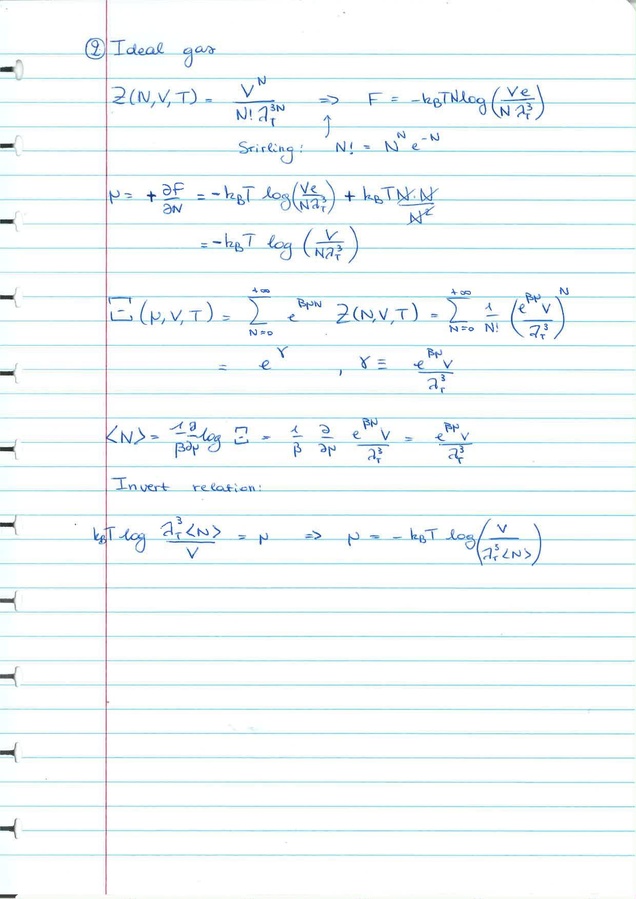 ② Ideal gas
Z(N,V,T) = V^N / (N! λ_T^{3N}) ⇒ F = -k_B T N log(Ve / (N λ_T^3))
↑
Stirling: N! = N^N e^{-N}
μ = + ∂F/∂N = -k_B T log(Ve / (N λ_T^3)) + k_B T N·N / N^2
= -k_B T log (V / (N λ_T^3))
Ξ(μ,V,T) = Σ_{N=0}^{+∞} e^{βμN} Z(N,V,T) = Σ_{N=0}^{+∞} 1/N! (e^{βμ} V / λ_T^3)^N
= e^γ , γ ≡ e^{βμ} V / λ_T^3
⟨N⟩ = 1/β ∂/∂μ log Ξ = 1/β ∂/∂μ e^{βμ} V / λ_T^3 = e^{βμ} V / λ_T^3
Invert relation:
k_B T log λ_T^3 ⟨N⟩ / V = μ ⇒ μ = - k_B T log(V / (λ_T^3 ⟨N⟩))